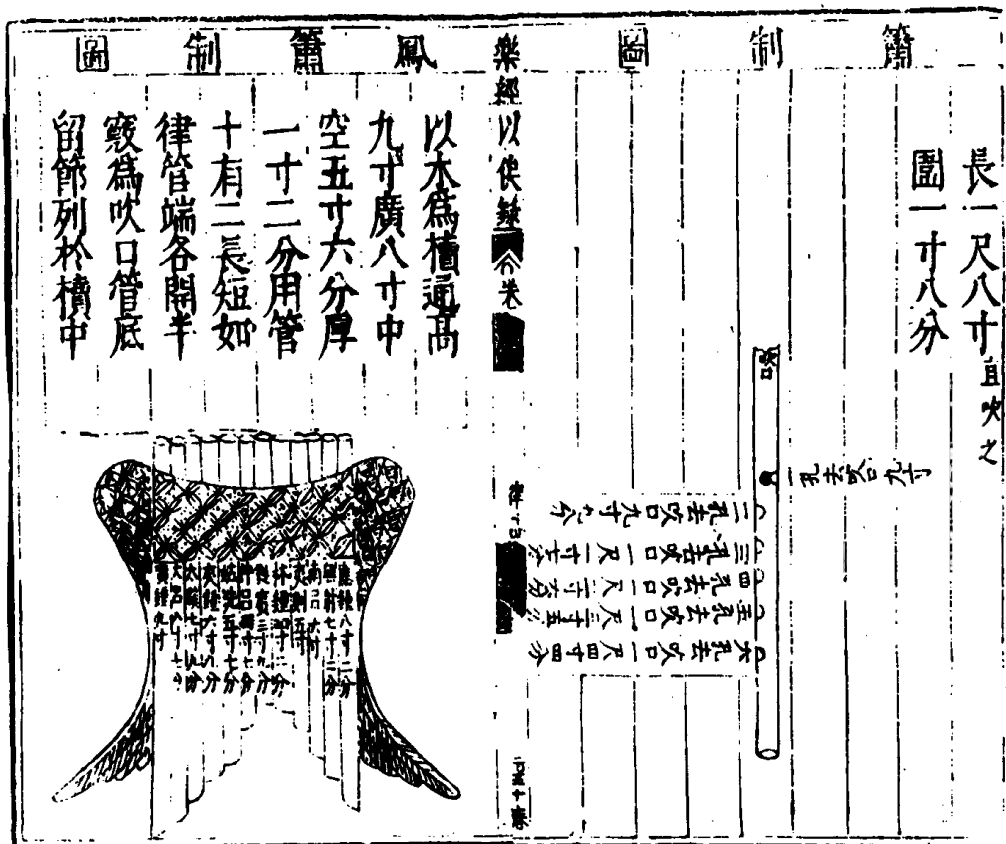 簫制圖
長一尺八寸自吹之
圍一寸八分
吹口
一孔去吹口九寸
二孔去吹口九寸九分
三孔去吹口一尺一寸
四孔去吹口一尺二寸
五孔去吹口一尺三寸
六孔去吹口一尺四寸四分
樂經以俟錄
鳳簫制圖
以木為櫝通高
九寸廣八寸中
空五寸六分厚
一寸二分用管
十有二長短如
律管端各開半
竅為吹口管底
留節列於櫝中
應鍾八寸二分
無射七寸二分
南呂六寸
夷則五寸
林鍾四寸二分
蕤賓三寸
仲呂四寸
姑洗五寸七分
夾鍾六寸八分
太簇七寸
大呂八寸
黃鍾九寸